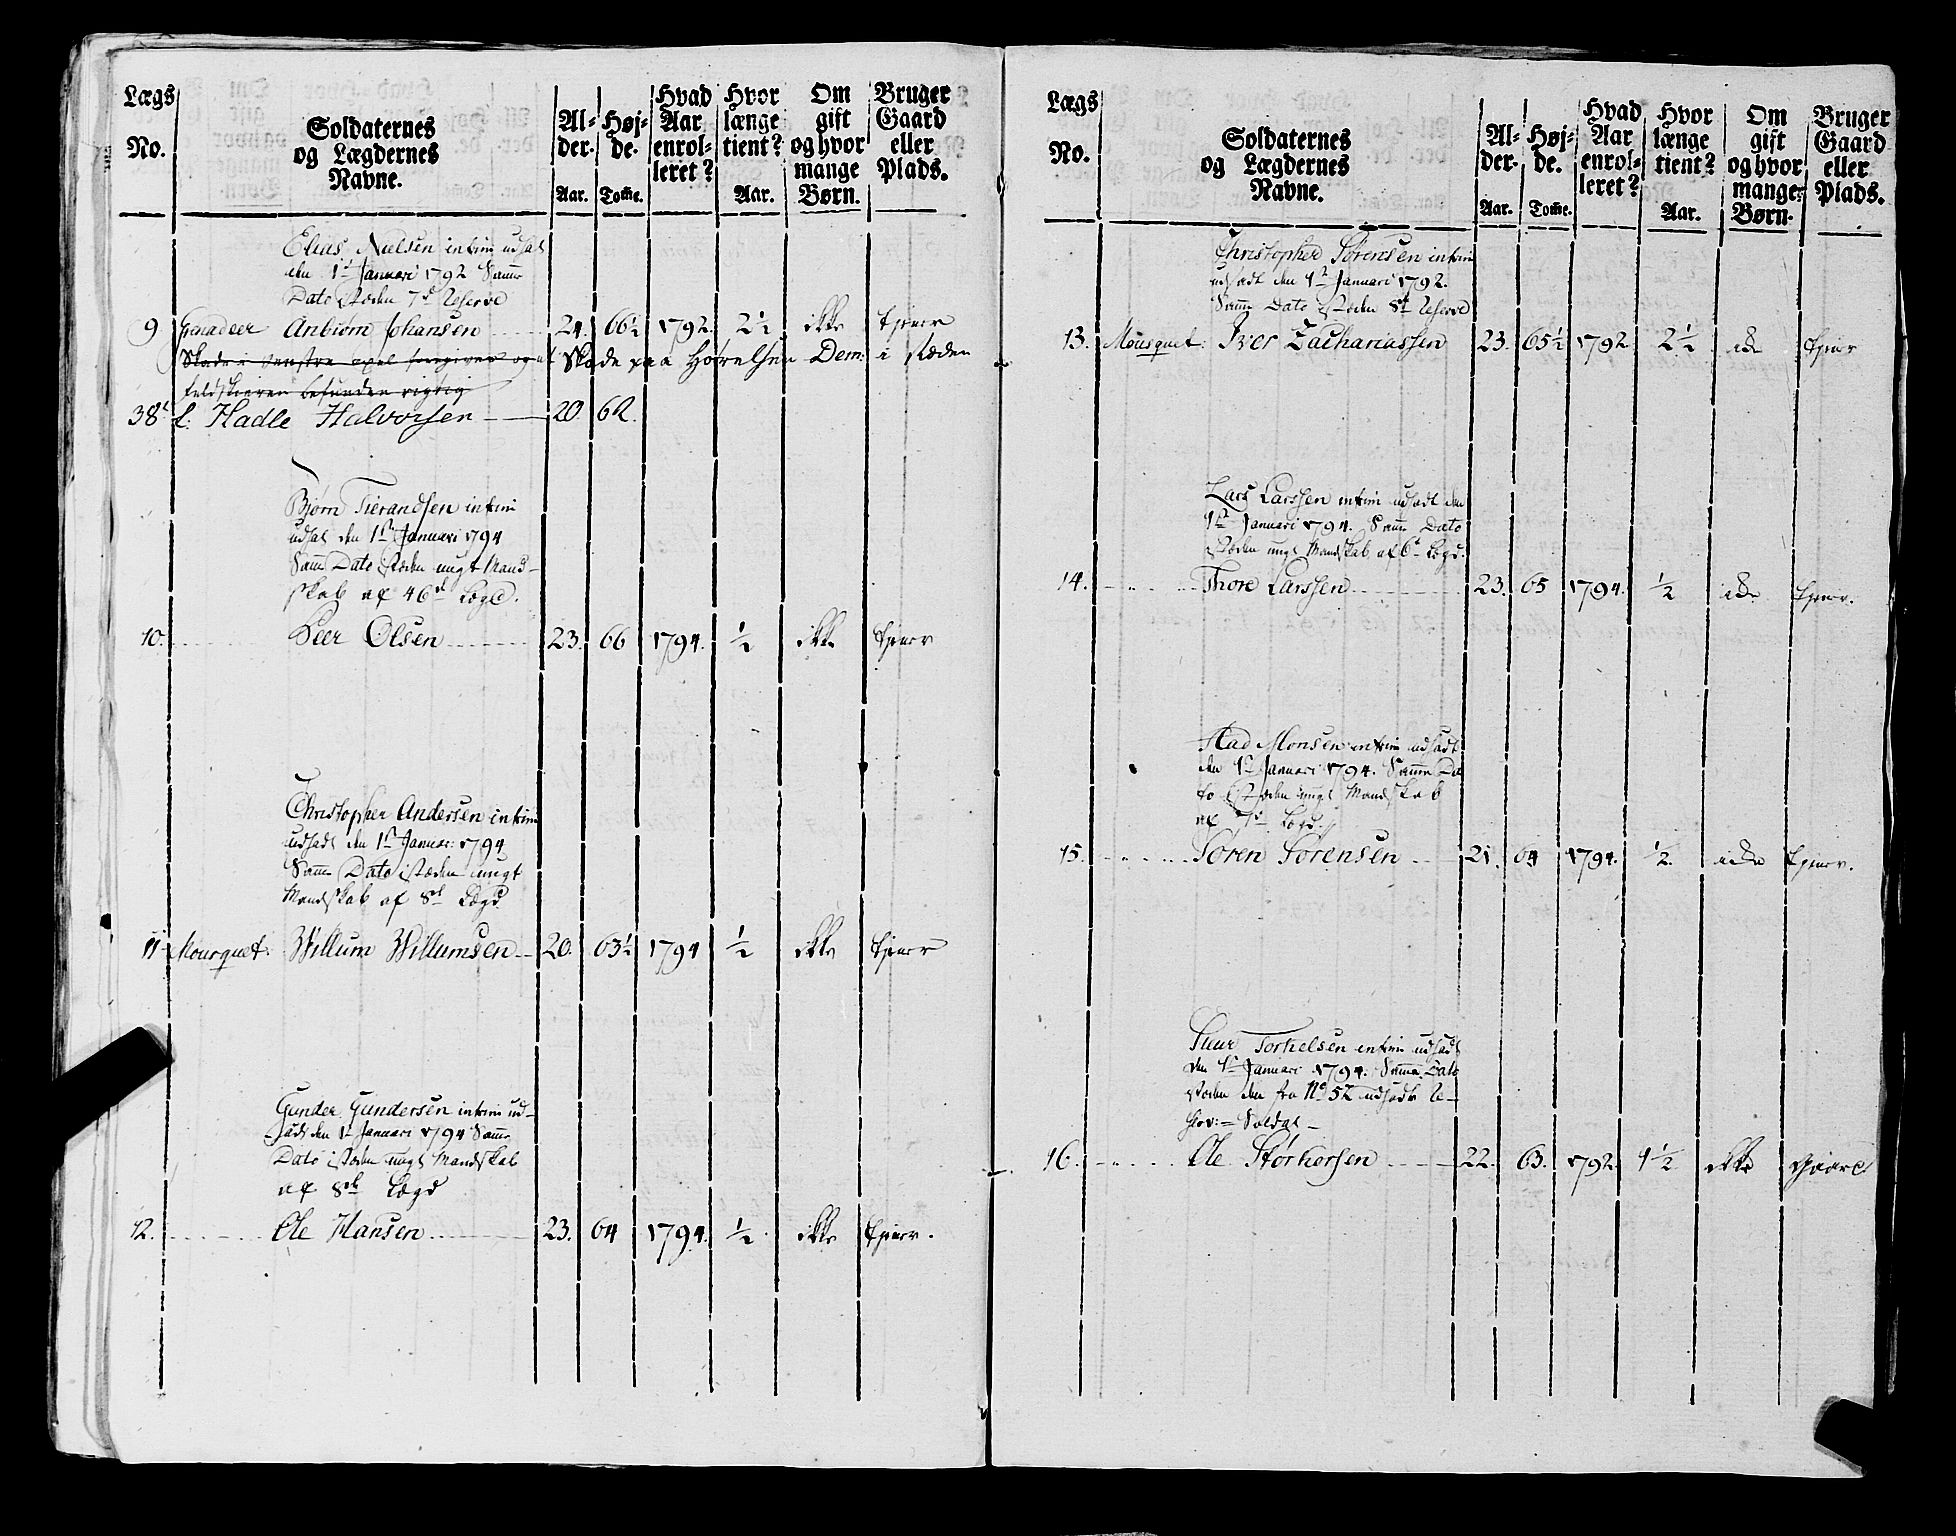 Lægs No. Soldaternes og Lægdernes Navne. Al-der. Aar. Høj-de. Tome. Hvad Aar enrol-leret? Hvor længe tient? Aar. Om gift og hvor mange Børn. Bruger Gaard eller Plads.
Elias Nielsen intrim udsat
den 1t Januari 1792 Samme
Dato i stæden 7d Reserve
9 Granadeer Anbiørn Johansen 24. 66½ 1792. 2½ ikke tjener
Skade i venstre axel foregiven og at Skade paa Hørelsen Dem: i stæden
feldskieren befunden rigtig
38t L: Hadle Halvorsen 20. 62.
Bjørn Tierandsen intrim
udsat den 1t Januari 1794
Samme Dato i stæden ungt Mand-
skab af 46d Lægd.
10. Peer Olsen 23. 66 1794. ½ ikke tjener
Christopher Andersen intrim
udsadt den 1t Januar: 1794
Samme Dato i stæden ungt
Mandskab af 8d Lægd
11 Mousquet: Willum Willumsen 20. 63½ 1794 ½ ikke tjener
Gunder Gundersen intrim ud-
sadt den 1t Januari 1794 Samme
Dato i stæden ungt Mandskab
af 8de Lægd
12. Ole Hansen 23. 64 1794. ½ ikke tjener.
Lægs No. Soldaternes og Lægdernes Navne. Al-der. Aar. Høj-de. Tome. Hvad Aar enrol-leret? Hvor længe tient? Aar. Om gift og hvor mange Børn. Bruger Gaard eller Plads.
Christopher Sørensen intrim
udsadt den 1t Januari 1792.
Samme Dato i stæden 8de Reserve
13. Mousquet: Iver Zachariassen 23. 65½ 1792 2½ ikke tjener
Lars Larssen intrim udsadt den
1t Januari 1794. Samme Dato
i stæden ungt Mandskab af 6t Lægd.
14. Thore Larssen 23. 65 1794. ½ ikke tjener.
Aad Monsen intrim udsadt
den 1t Januari 1794. Samme Da
to i stæden ungt Mandskab
af Lægd.
15. Søren Sørensen 21. 64 1794. ½ ikke tjener.
Siur Torkelsen intrim udsadt
den 1t Januari 1794. Samme Dato
i stæden den fra No 52 udsadte Re-
serv:= Soldat
16. Ole Størkersen 22. 63. 1792. 1½ ikke Gaard